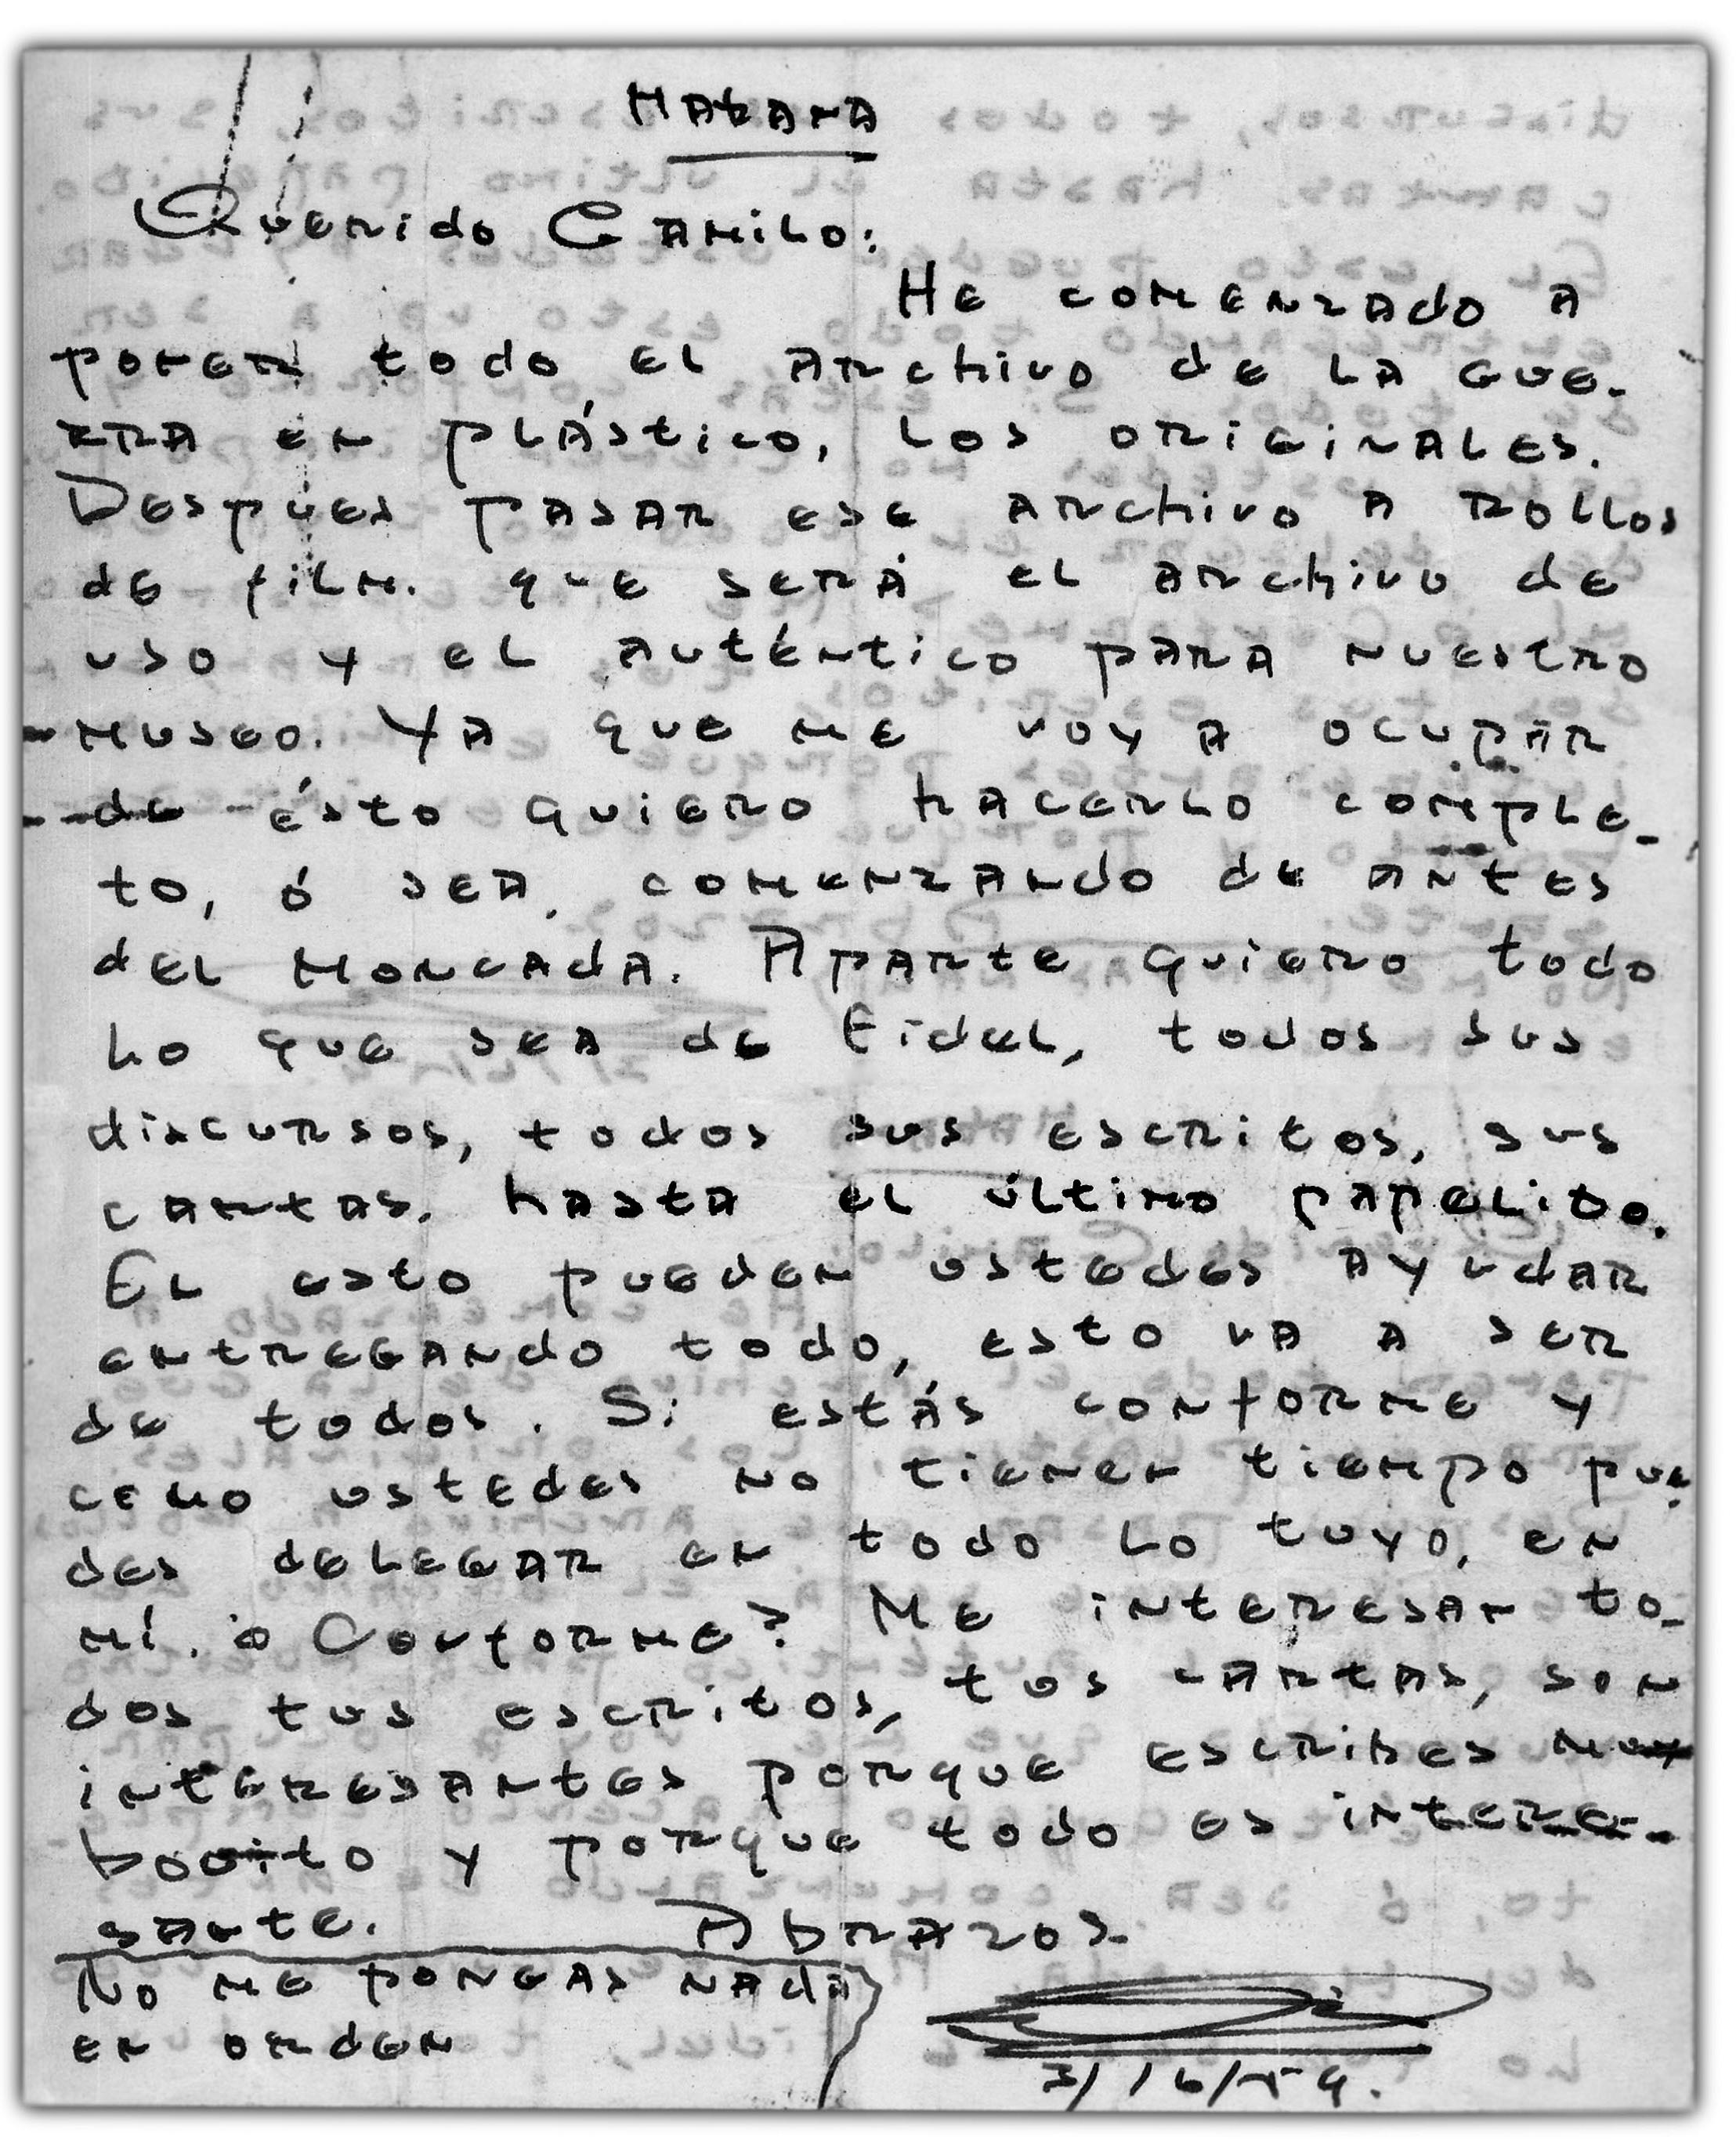 HABANA
Querido Camilo:
He comenzado a
poner todo el archivo de la gue-
rra en plástico, los originales.
Despues pasar ese archivo a rollos
de film. que será el archivo de
uso y el auténtico para nuestro
museo. Ya que me voy a ocupar
de ésto quiero hacerlo comple-
to, ó sea, comenzando de antes
del Moncada. Aparte quiero todo
lo que sea de Fidel, todos sus
discursos, todos sus escritos, sus
cartas, hasta el último papelito.
En esto pueden ustedes ayudar
entregando todo, esto va a ser
de todos. Si estás conforme y
como ustedes no tienen tiempo pue
des delegar en todo lo tuyo, en
mí. ¿Conforme? Me interesan to-
dos tus escritos, tus cartas, son
interesantes porque escribes muy
bonito y porque todo es intere-
sante. Abrazos.
No me pongas nada
en orden
3/16/59.